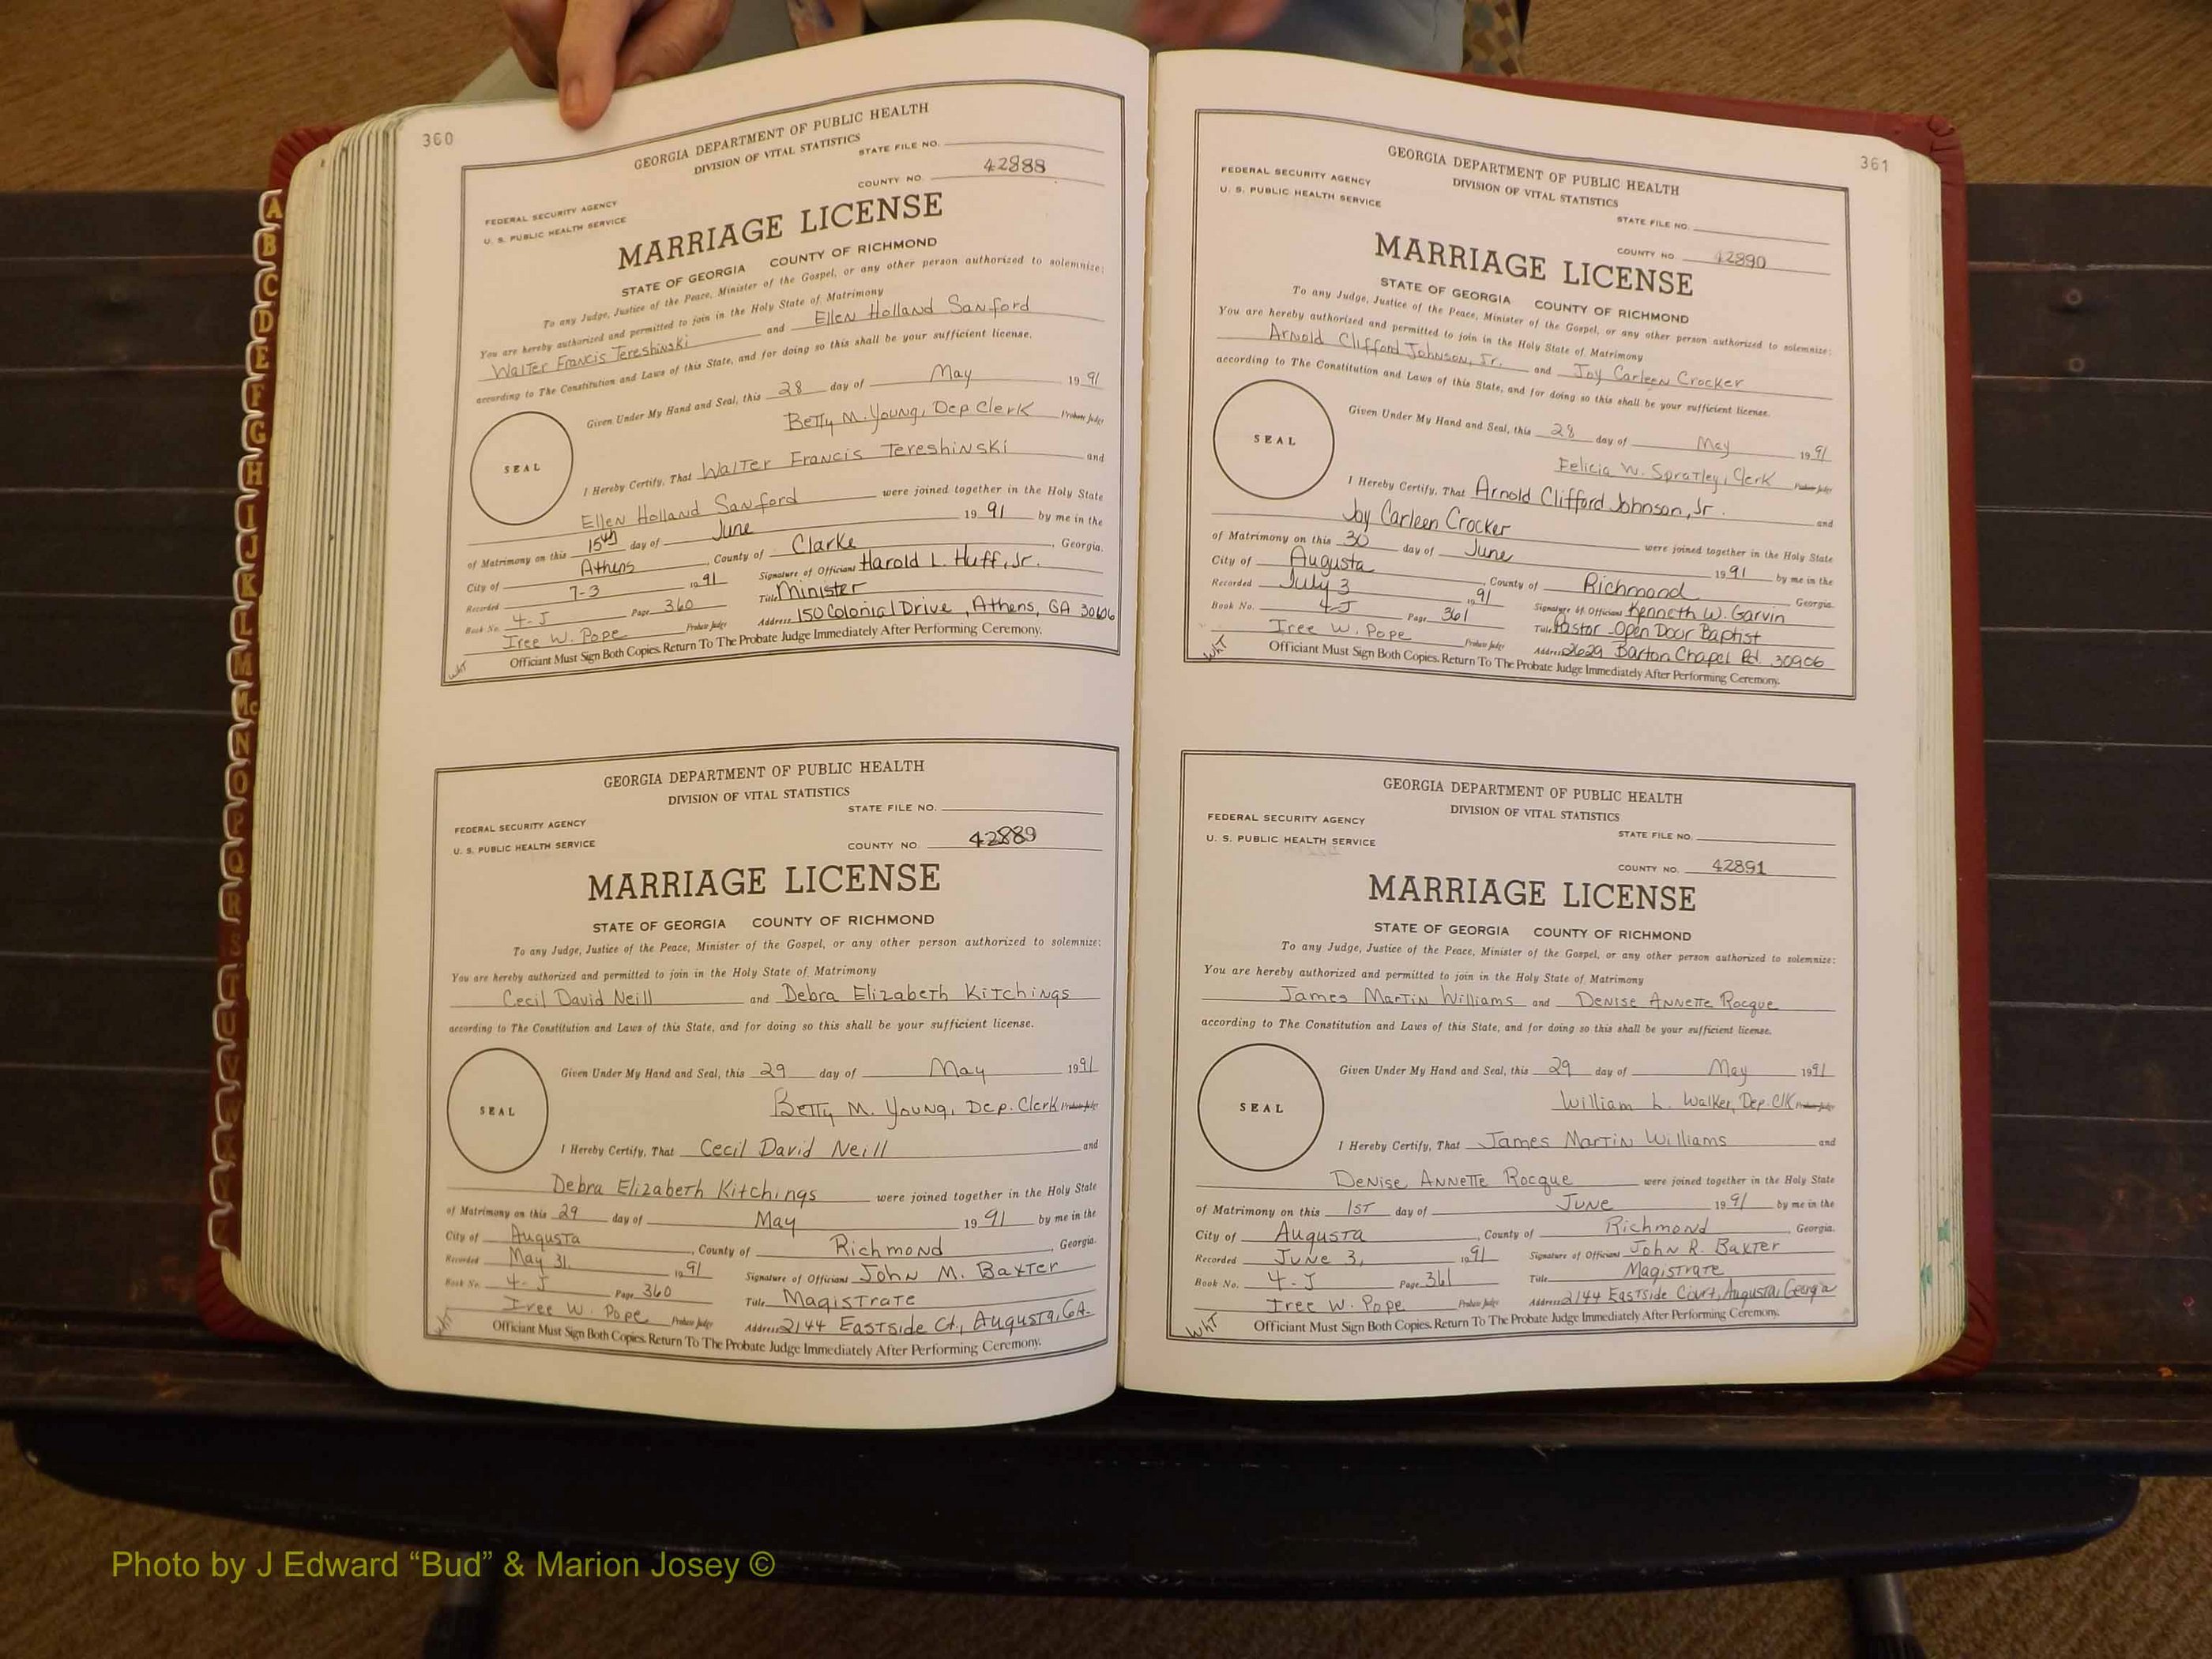 A
B
C
D
E
F
G
H
I
J
K
L
M
Mc
N
O
P
Q
R
S
T
U
V
W
360
GEORGIA DEPARTMENT OF PUBLIC HEALTH
DIVISION OF VITAL STATISTICS
STATE FILE NO.
COUNTY NO. 42888
FEDERAL SECURITY AGENCY
U. S. PUBLIC HEALTH SERVICE
MARRIAGE LICENSE
STATE OF GEORGIA COUNTY OF RICHMOND
To any Judge, Justice of the Peace, Minister of the Gospel, or any other person authorized to solemnize:
You are hereby authorized and permitted to join in the Holy State of Matrimony
Walter Francis Tereshinski and Ellen Holland Sanford
according to The Constitution and Laws of this State, and for doing so this shall be your sufficient license.
Given Under My Hand and Seal, this 28 day of May 1991
Betty M. Young, Dep Clerk Probate Judge
SEAL
I Hereby Certify, That Walter Francis Tereshinski and
Ellen Holland Sanford were joined together in the Holy State
of Matrimony on this 15th day of June 1991 by me in the
City of Athens, County of Clarke, Georgia.
Recorded 7-3 1991 Signature of Officiant Harold L. Huff, Jr.
Book No. 4-J Page 360 Title Minister
Iree W. Pope Probate Judge Address 150 Colonial Drive, Athens, GA 30606
Officiant Must Sign Both Copies. Return To The Probate Judge Immediately After Performing Ceremony.
WhT
GEORGIA DEPARTMENT OF PUBLIC HEALTH
DIVISION OF VITAL STATISTICS
STATE FILE NO.
FEDERAL SECURITY AGENCY
U. S. PUBLIC HEALTH SERVICE
COUNTY NO 42889
MARRIAGE LICENSE
STATE OF GEORGIA COUNTY OF RICHMOND
To any Judge, Justice of the Peace, Minister of the Gospel, or any other person authorized to solemnize:
You are hereby authorized and permitted to join in the Holy State of Matrimony
Cecil David Neill and Debra Elizabeth Kitchings
according to The Constitution and Laws of this State, and for doing so this shall be your sufficient license.
Given Under My Hand and Seal, this 29 day of May 1991
Betty M. Young, Dep. Clerk Probate Judge
SEAL
I Hereby Certify, That Cecil David Neill and
Debra Elizabeth Kitchings were joined together in the Holy State
of Matrimony on this 29 day of May 1991 by me in the
City of Augusta, County of Richmond, Georgia.
Recorded May 31. 1991 Signature of Officiant John M. Baxter
Book No. 4-J Page 360 Title Magistrate
Iree W. Pope Probate Judge Address 2144 Eastside Ct, Augusta, GA.
Officiant Must Sign Both Copies. Return To The Probate Judge Immediately After Performing Ceremony.
WhT
361
GEORGIA DEPARTMENT OF PUBLIC HEALTH
DIVISION OF VITAL STATISTICS
FEDERAL SECURITY AGENCY
U. S. PUBLIC HEALTH SERVICE
STATE FILE NO.
COUNTY NO. 42890
MARRIAGE LICENSE
STATE OF GEORGIA COUNTY OF RICHMOND
To any Judge, Justice of the Peace, Minister of the Gospel, or any other person authorized to solemnize:
You are hereby authorized and permitted to join in the Holy State of Matrimony
Arnold Clifford Johnson, Jr. and Joy Carleen Crocker
according to The Constitution and Laws of this State, and for doing so this shall be your sufficient license.
Given Under My Hand and Seal, this 28 day of May 1991
Felicia W. Spratley, Clerk Probate Judge
SEAL
I Hereby Certify, That Arnold Clifford Johnson, Jr. and
Joy Carleen Crocker were joined together in the Holy State
of Matrimony on this 30 day of June 1991 by me in the
City of Augusta, County of Richmond Georgia.
Recorded July 3 1991 Signature of Officiant Kenneth W. Garvin
Book No. 4-J Page 361 Title Pastor - Open Door Baptist
Iree W. Pope Probate Judge Address 2629 Barton Chapel Rd. 30906
Officiant Must Sign Both Copies. Return To The Probate Judge Immediately After Performing Ceremony.
WhT
GEORGIA DEPARTMENT OF PUBLIC HEALTH
DIVISION OF VITAL STATISTICS
FEDERAL SECURITY AGENCY
U. S. PUBLIC HEALTH SERVICE
STATE FILE NO.
COUNTY NO. 42891
MARRIAGE LICENSE
STATE OF GEORGIA COUNTY OF RICHMOND
To any Judge, Justice of the Peace, Minister of the Gospel, or any other person authorized to solemnize:
You are hereby authorized and permitted to join in the Holy State of Matrimony
James Martin Williams and Denise Annette Rocque
according to The Constitution and Laws of this State, and for doing so this shall be your sufficient license.
Given Under My Hand and Seal, this 29 day of May 1991
William L. Walker, Dep. Clk Probate Judge
SEAL
I Hereby Certify, That James Martin Williams and
Denise Annette Rocque were joined together in the Holy State
of Matrimony on this 1st day of June 1991 by me in the
City of Augusta, County of Richmond Georgia.
Recorded June 3, 1991 Signature of Officiant John R. Baxter
Book No. 4-J Page 361 Title Magistrate
Iree W. Pope Probate Judge Address 2144 Eastside Court, Augusta, Georgia
Officiant Must Sign Both Copies. Return To The Probate Judge Immediately After Performing Ceremony.
WhT
Photo by J Edward “Bud” & Marion Josey ©